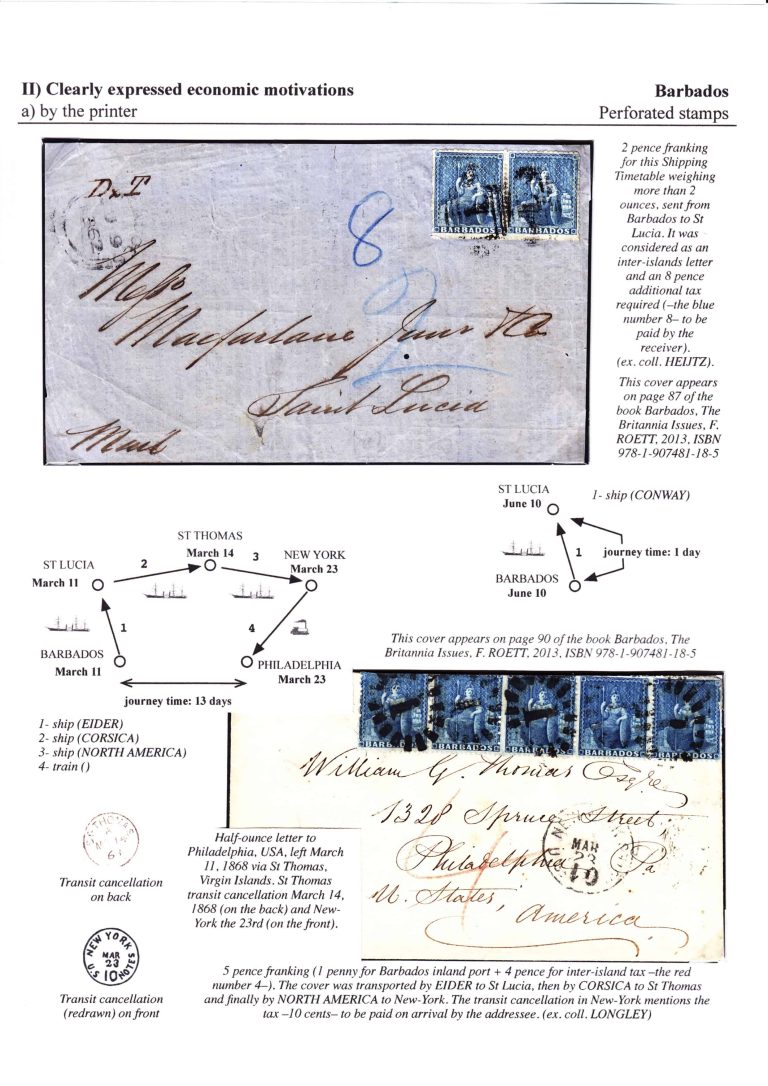 II) Clearly expressed economic motivations
Barbados
a) by the printer
Perforated stamps
2 pence franking
for this Shipping
Timetable weighing
more than 2
ounces, sent from
Barbados to St
Lucia. It was
considered as an
inter-islands letter
and an 8 pence
additional tax
required (–the blue
number 8– to be
paid by the
receiver).
(ex. coll. HEIJTZ).
This cover appears
on page 87 of the
book Barbados, The
Britannia Issues, F.
ROETT, 2013, ISBN
978-1-907481-18-5
BARBADOS
BARBADOS
8
Messrs
Macfarlane Junr & Co
Saint Lucia
ST LUCIA
June 10
1- ship (CONWAY)
1
journey time: 1 day
BARBADOS
June 10
ST THOMAS
March 14
2
3
ST LUCIA
March 11
NEW YORK
March 23
1
4
BARBADOS
March 11
PHILADELPHIA
March 23
journey time: 13 days
1- ship (EIDER)
2- ship (CORSICA)
3- ship (NORTH AMERICA)
4- train ()
This cover appears on page 90 of the book Barbados, The
Britannia Issues, F. ROETT, 2013, ISBN 978-1-907481-18-5
BARBADOS
BARBADOS
BARBADOS
BARBADOS
BARBADOS
William G. Thomas Esqre
1328 Spruce Street
Philadelphia Pa
U. States,
America
MAR
23
10
ST THOMAS
Transit cancellation
on back
Half-ounce letter to
Philadelphia, USA, left March
11, 1868 via St Thomas,
Virgin Islands. St Thomas
transit cancellation March 14,
1868 (on the back) and New-
York the 23rd (on the front).
NEW YORK
MAR
23
10
U.S NOTES
Transit cancellation
(redrawn) on front
5 pence franking (1 penny for Barbados inland port + 4 pence for inter-island tax –the red
number 4–). The cover was transported by EIDER to St Lucia, then by CORSICA to St Thomas
and finally by NORTH AMERICA to New-York. The transit cancellation in New-York mentions the
tax –10 cents– to be paid on arrival by the addressee. (ex. coll. LONGLEY)